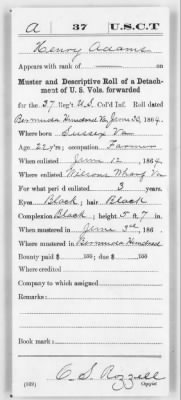 A | 37 | U.S.C.T
Henry Adams
Appears with rank of
Muster and Descriptive Roll of a Detach-
ment of U. S. Vols. forwarded
for the 37 Reg't U.S. Col'd Inf. Roll dated
Bermuda Hundred Va June 30, 1864.
Where born Sussex Va
Age 22 y'rs; occupation Farmer
When enlisted June 12, 1864.
Where enlisted Wilsons Wharf Va
For what period enlisted 3 years.
Eyes Black; hair Black
Complexion Black; height 5 ft 7 in.
When mustered in June 3rd, 186 .
Where mustered in Bermuda Hundred
Bounty paid $ 100; due $ 100
Where credited
Company to which assigned
Remarks:
Book mark:
C. S. Rozzell
(339) Copyist